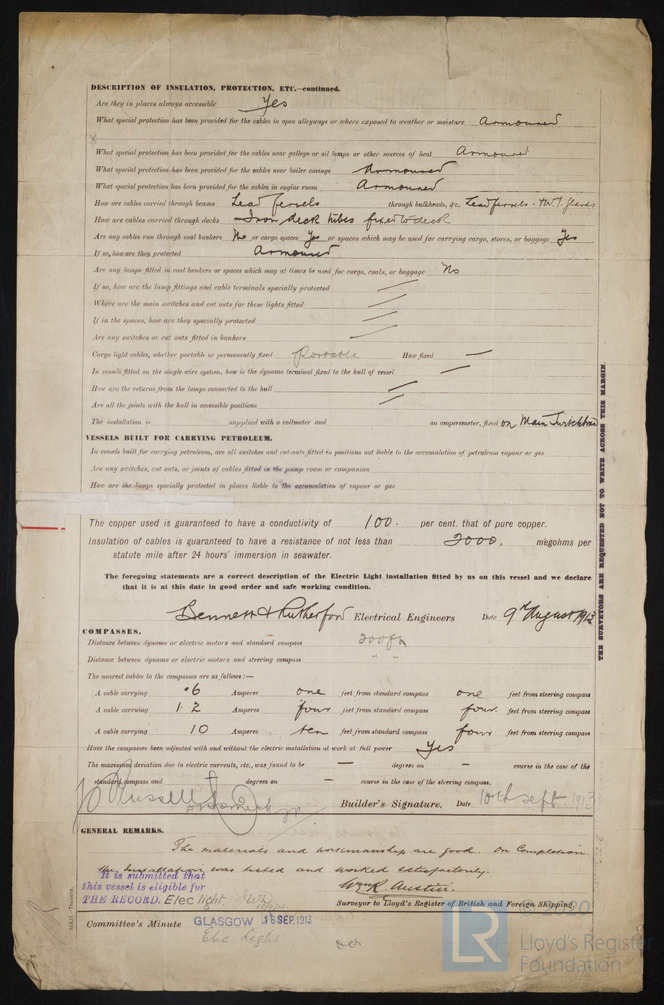 DESCRIPTION OF INSULATION, PROTECTION, ETC.—continued.
Are they in places always accessible Yes
What special protection has been provided for the cables in open alleyways or where exposed to weather or moisture Armoured
What special protection has been provided for the cables near galleys or oil lamps or other sources of heat Armoured
What special protection has been provided for the cables near boiler casings Armoured
What special protection has been provided for the cables in engine room Armoured
How are cables carried through beams Lead ferrels through bulkheads, &c. Lead ferrels - W.T. glands
How are cables carried through decks Iron deck tubes fixed to deck
Are any cables run through coal bunkers No or cargo spaces Yes or spaces which may be used for carrying cargo, stores, or baggage Yes
If so, how are they protected Armoured
Are any lamps fitted in coal bunkers or spaces which may at times be used for cargo, coals, or baggage No
If so, how are the lamp fittings and cable terminals specially protected
Where are the main switches and cut outs for these lights fitted
If in the spaces, how are they specially protected
Are any switches or cut outs fitted in bunkers
Cargo light cables, whether portable or permanently fixed Portable How fixed —
In vessels fitted on the single wire system, how is the dynamo terminal fixed to the hull of vessel
How are the returns from the lamps connected to the hull
Are all the joints with the hull in accessible positions
The installation is supplied with a voltmeter and an amperemeter, fixed on Main Switchboard
VESSELS BUILT FOR CARRYING PETROLEUM.
In vessels built for carrying petroleum, are all switches and cut-outs fitted in positions not liable to the accumulation of petroleum vapour or gas
Are any switches, cut outs, or joints of cables fitted in the pump room or companion
How are the lamps specially protected in places liable to the accumulation of vapour or gas
The copper used is guaranteed to have a conductivity of 100. per cent. that of pure copper.
Insulation of cables is guaranteed to have a resistance of not less than 2000. megohms per
statute mile after 24 hours' immersion in seawater.
The foregoing statements are a correct description of the Electric Light installation fitted by us on this vessel and we declare
that it is at this date in good order and safe working condition.
Bennett & Rutherford Electrical Engineers Date 9th August 1913
COMPASSES.
Distance between dynamo or electric motors and standard compass 200 ft
Distance between dynamo or electric motors and steering compass " "
The nearest cables to the compasses are as follows:—
A cable carrying .6 Amperes one feet from standard compass one feet from steering compass
A cable carrying 1.2 Amperes four feet from standard compass four feet from steering compass
A cable carrying 10 Amperes ten feet from standard compass four feet from steering compass
Have the compasses been adjusted with and without the electric installation at work at full power Yes
The maximum deviation due to electric currents, etc., was found to be — degrees on — course in the case of the
standard compass and degrees on — course in the case of the steering compass.
Russell Builder's Signature. Date 10th Sept 1913
GENERAL REMARKS.
The materials and workmanship are good. On Completion
the Installation was tested and worked satisfactorily.
It is submitted that
this vessel is eligible for
THE RECORD. Elec light
Wm R. Austin.
Surveyor to Lloyd's Register of British and Foreign Shipping.
Committee's Minute GLASGOW 16 SEP. 1913
Elec Light
THE SURVEYORS ARE REQUESTED NOT TO WRITE ACROSS THIS MARGIN.
© 2020
LR
Lloyd's Register
Foundation